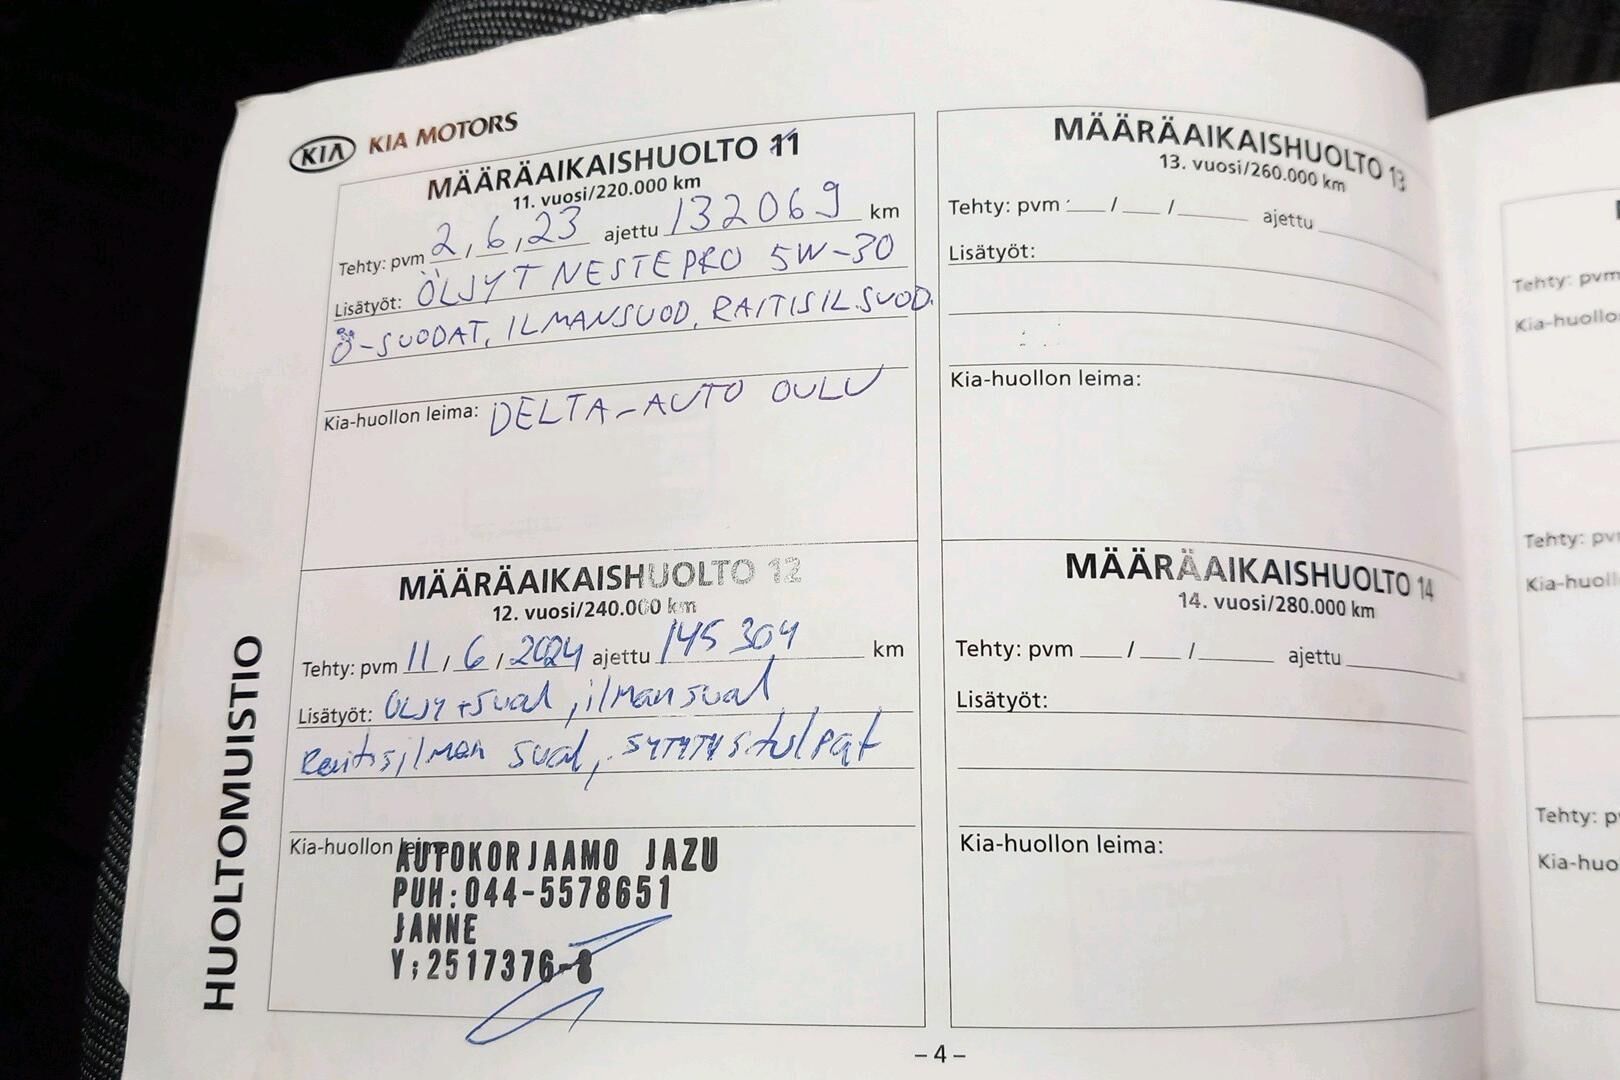 KIA KIA MOTORS
MÄÄRÄAIKAISHUOLTO 11
11. vuosi/220.000 km
Tehty: pvm 2 / 6 / 23 ajettu 132069 km
Lisätyöt: ÖLJYT NESTE PRO 5W-30
Ö-SUODAT, ILMANSUOD, RAITISIL.SUOD.
Kia-huollon leima: DELTA-AUTO OULU
MÄÄRÄAIKAISHUOLTO 12
12. vuosi/240.000 km
Tehty: pvm 11 / 6 / 2024 ajettu 145 304 km
Lisätyöt: ÖLJY + suod, ilman suod
Raitisilman suod, SYTYTYStulpat
Kia-huollon leima
AUTOKORJAAMO JAZU
PUH:044-5578651
JANNE
Y;2517376-8
HUOLTOMUISTIO
MÄÄRÄAIKAISHUOLTO 13
13. vuosi/260.000 km
Tehty: pvm / / ajettu
Lisätyöt:
Kia-huollon leima:
MÄÄRÄAIKAISHUOLTO 14
14. vuosi/280.000 km
Tehty: pvm / / ajettu
Lisätyöt:
Kia-huollon leima:
– 4 –
Tehty: pvm
Kia-huollo
Tehty: pv
Kia-huoll
Tehty: p
Kia-huo